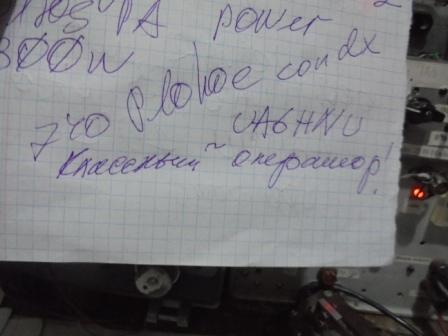 PA power
300w
740 Plohoe condx
UA6HNU
Классный оператор!